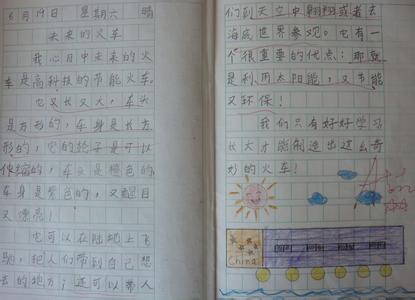 6月19日 星期六 晴
未来的火车
我心目中未来的火
车是高科技的节能火车。
它又长又大，车头
是方形的，车身是长方
形的，它的轮子是可以
伸缩的，车头是橙色的，
车身是紫色的，又醒目
又漂亮！
它可以在陆地上飞
驰，把人们带到自己想
去的地方；还可以带人
们到天空中翱翔或者去
海底世界参观。它有一
个很重要的优点：那就
是利用太阳能，又节能
又环保！
我们只有好好学习
长大才能制造出这么奇
妙的火车！
China